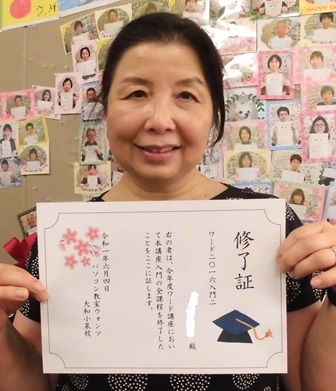 修了証
ワード二〇一六入門二
殿
右の者は、今年度ワード講座におい
て本講座入門の全課程を終了した
ことをここに証します。
令和一年六月四日
パソコン教室ウォンツ
大和小泉校